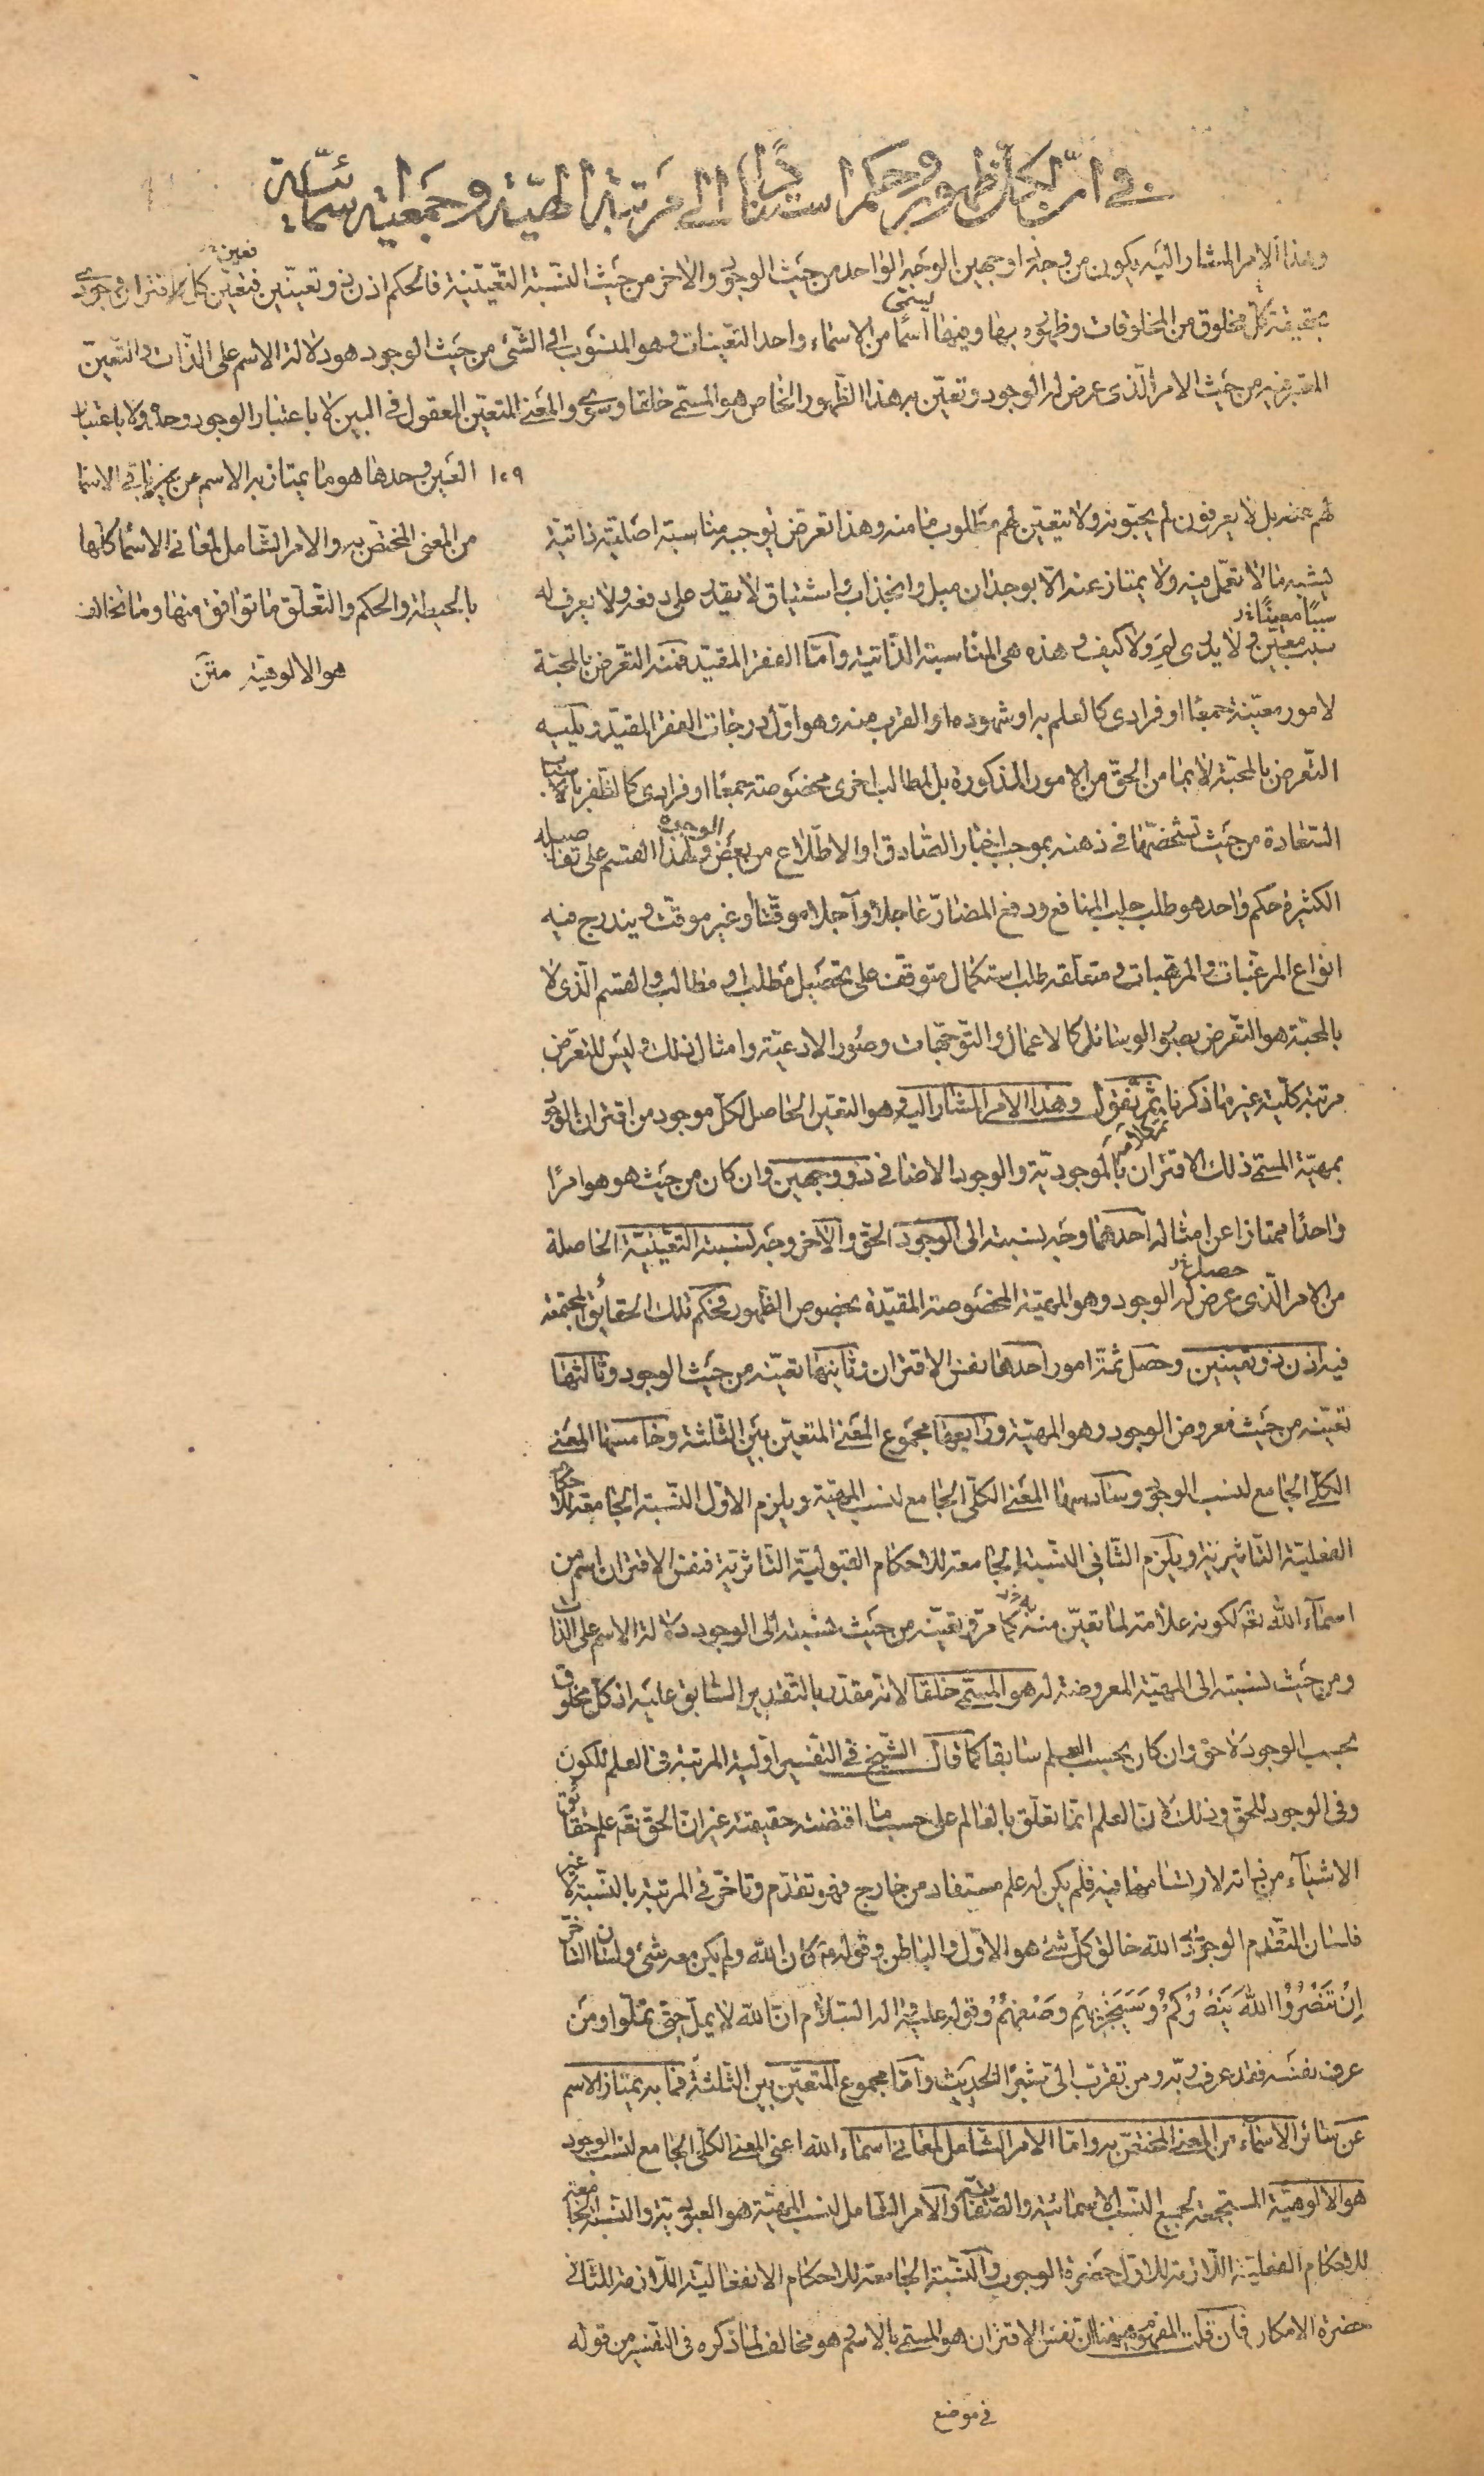 في امر الكمال ظهوره وحكم استنادًا الى مرتبة الهيّة وجمعية سمائيّة
وهذا الامر المشار اليه يكون من وجه ذا وجهين الوجه الواحد من حيث الوجود والاخر من حيث النسبة التعيّنيّة فالحكم اذن ذو تعيّنين فتعيّن كل اقتران وجودى
بحقيقة كل مخلوق من المخلوقات وظهوره بها ومنها يسمى اسمًا من الاسماء واحد التعيّنات وهو المنسوب الى الشئ من حيث الوجود هو دلالة الاسم على الذات والتعيّن
المقترن به من حيث الامر الّذى عرض له الوجود وتعيّن به هذا الظهور الخاص هو المسمّى خلقا وسوى والمعنى المتعيّن المعقول فى البين لا باعتبار الوجود وحده ولا باعتبار
١٠٩ العين وحدها هو ما يمتاز به الاسم عن غيره باقى الاسما
من المعنى المختص به والامر الشامل لمعانى الاسما كلها
بالحيطة والحكم والتعلق ما توافق منها وما تخالف
هو الالوهية متن
لهم عنه بل لا يعرفون لم يحبّونه ولا يتعيّن لهم مطلوب ما منه وهذا تعرض توجبه مناسبة اصلية ذاتية
يشبه ما لا تعمّل فيه ولا يمتاز عنه الّا بوجدان ميل وانجذاب واشتياق لا يقدر على دفعه ولا يعرف له
سببًا معينًا
سبب معيّن ولا يدرى لم ولا كيف وهذه هى المناسبة الذاتية وامّا الفقر المقيّد فمنه التعرض بالمحبة
لامور معيّنة جمعًا او فرادى كالعلم به او شهوده او القرب منه وهو اوّل درجات الفقر المقيّد ويليه
التعرض بالمحبّة لا بما من الحقّ من الامور المذكورة بل لمطالب اخرى مخصوصة جمعًا او فرادى كالظفر باسباب
السعادة من حيث تشخصّها فى ذهنه بموجب اخبار الصّادق او الاطّلاع من بعض الوجوه ولهذا القسم على تفاصيله
الكثيرة حكم واحد هو طلب جلب المنافع ودفع المضارّ عاجلا وآجلا موقّتا وغير موقّت ويندرج فيه
انواع المرغبات والمرهبات ومتعلقه طلب استكمال متوقّف على تحصيل مطلب او مطالب والقسم الّذى لا
بالمحبّة هو التعرض بصور الوسائل كالاعمال والتوجّهات وصور الادعية وامثال ذلك وليس للتعرّض
مرتبة كلّية غير ما ذكرنا ثم نقول وهذا الامر المشار اليه وهو التعيّن الحاصل لكل موجود من اقتران الوجود
بمهيّة المسمّى ذلك الاقتران بالموجوديّة والوجود الاضافى ذو وجهين وان كان من حيث هو هو امرًا
واحدًا ممتازا عن امثاله احدهما وجه نسبته الى الوجود الحق والاخر وجه نسبته التعيّنيّة الحاصلة
من الامر الّذى عرض له الوجود وهو المهيّة المخصوصة المقيّدة بخصوص الظهور فحكم تلك الحقائق المجتمعة
فيه اذن ذو تعيّنين وحصل ثمّة امور احدها نفس الاقتران وثانيها تعيّنه من حيث الوجود وثالثها
تعيّنه من حيث معروض الوجود وهو المهيّة ورابعها مجموع المعنى المتعيّن بين الثلثة وخامسها المعنى
الكلّى الجامع لنسب الوجود وسادسها المعنى الكلّى الجامع لنسب المهيّة ويلزم الاوّل النسبة الجامعة للاحكام
الفعليّة التاثيريّة ويلزم الثانى النسبة الجامعة للاحكام القبوليّة التاثريّة فنفس الاقتران اسم من
اسماء الله تعالى لكونه علامة لما تعيّن منه كما مرّ وتعيّنه من حيث نسبته الى الوجود دلالة الاسم على الذات
ومن حيث نسبته الى المهيّة المعروضة له هو المسمّى خلقا لانه مقدّر بالتقدير السابق عليه اذ كلّ مخلوق
بحسب الوجود لاحق وان كان بحسب العلم سابقا كما قال الشيخ فى التفسير اوّلية المرتبة فى العلم للكون
وفى الوجود للحق وذلك لانّ العلم انّما تعلّق بالعالم على حسب ما اقتضته حقيقته غير انّ الحقّ تعالى علم حقائق
الاشياء من ذاته لارتسامها فيه فلم يكن له علم مستفاد من خارج فهو تقدّم وتاخّر فى المرتبة بالنسبة لا غير
فلسان التقدّم الوجودى الله خالق كلّ شئ هو الاوّل والباطن وقوله كان الله ولم يكن معه شئ ولسان التاخّر
اِنْ تَنْصُرُوا اللهَ يَنْصُرْكُمْ وَسَيَجْزِيهِمْ وَصْفَهُمْ وقوله عليه وآله السّلام انّ الله لا يملّ حتى تملّوا ومن
عرف نفسه فقد عرف ربّه ومن تقرّب الىّ شبرًا الحديث وامّا مجموع المتعيّن بين الثلثة فما به يمتاز الاسم
عن سائر الاسماء من المعنى المختصّ به وامّا الامر الشامل لمعانى اسماء الله اعنى المعنى الكلّى الجامع لنسب الوجود
هو الالوهيّة المستجمعة لجميع النسب الاسمائية والصفاتيّة والامر الشامل لنسب المهيّة هو العبوديّة والنسبة الجامعة
للاحكام الفعلية اللّازمة للاوّل حضرة الوجوب والنسبة الجامعة للاحكام الانفعاليّة اللّازمة للثانى
حضرة الامكان فان قلت المفهوم ههنا ان نفس الاقتران هو المسمّى بالاسم وهو مخالف لما ذكره فى التفسير من قوله
فى موضع